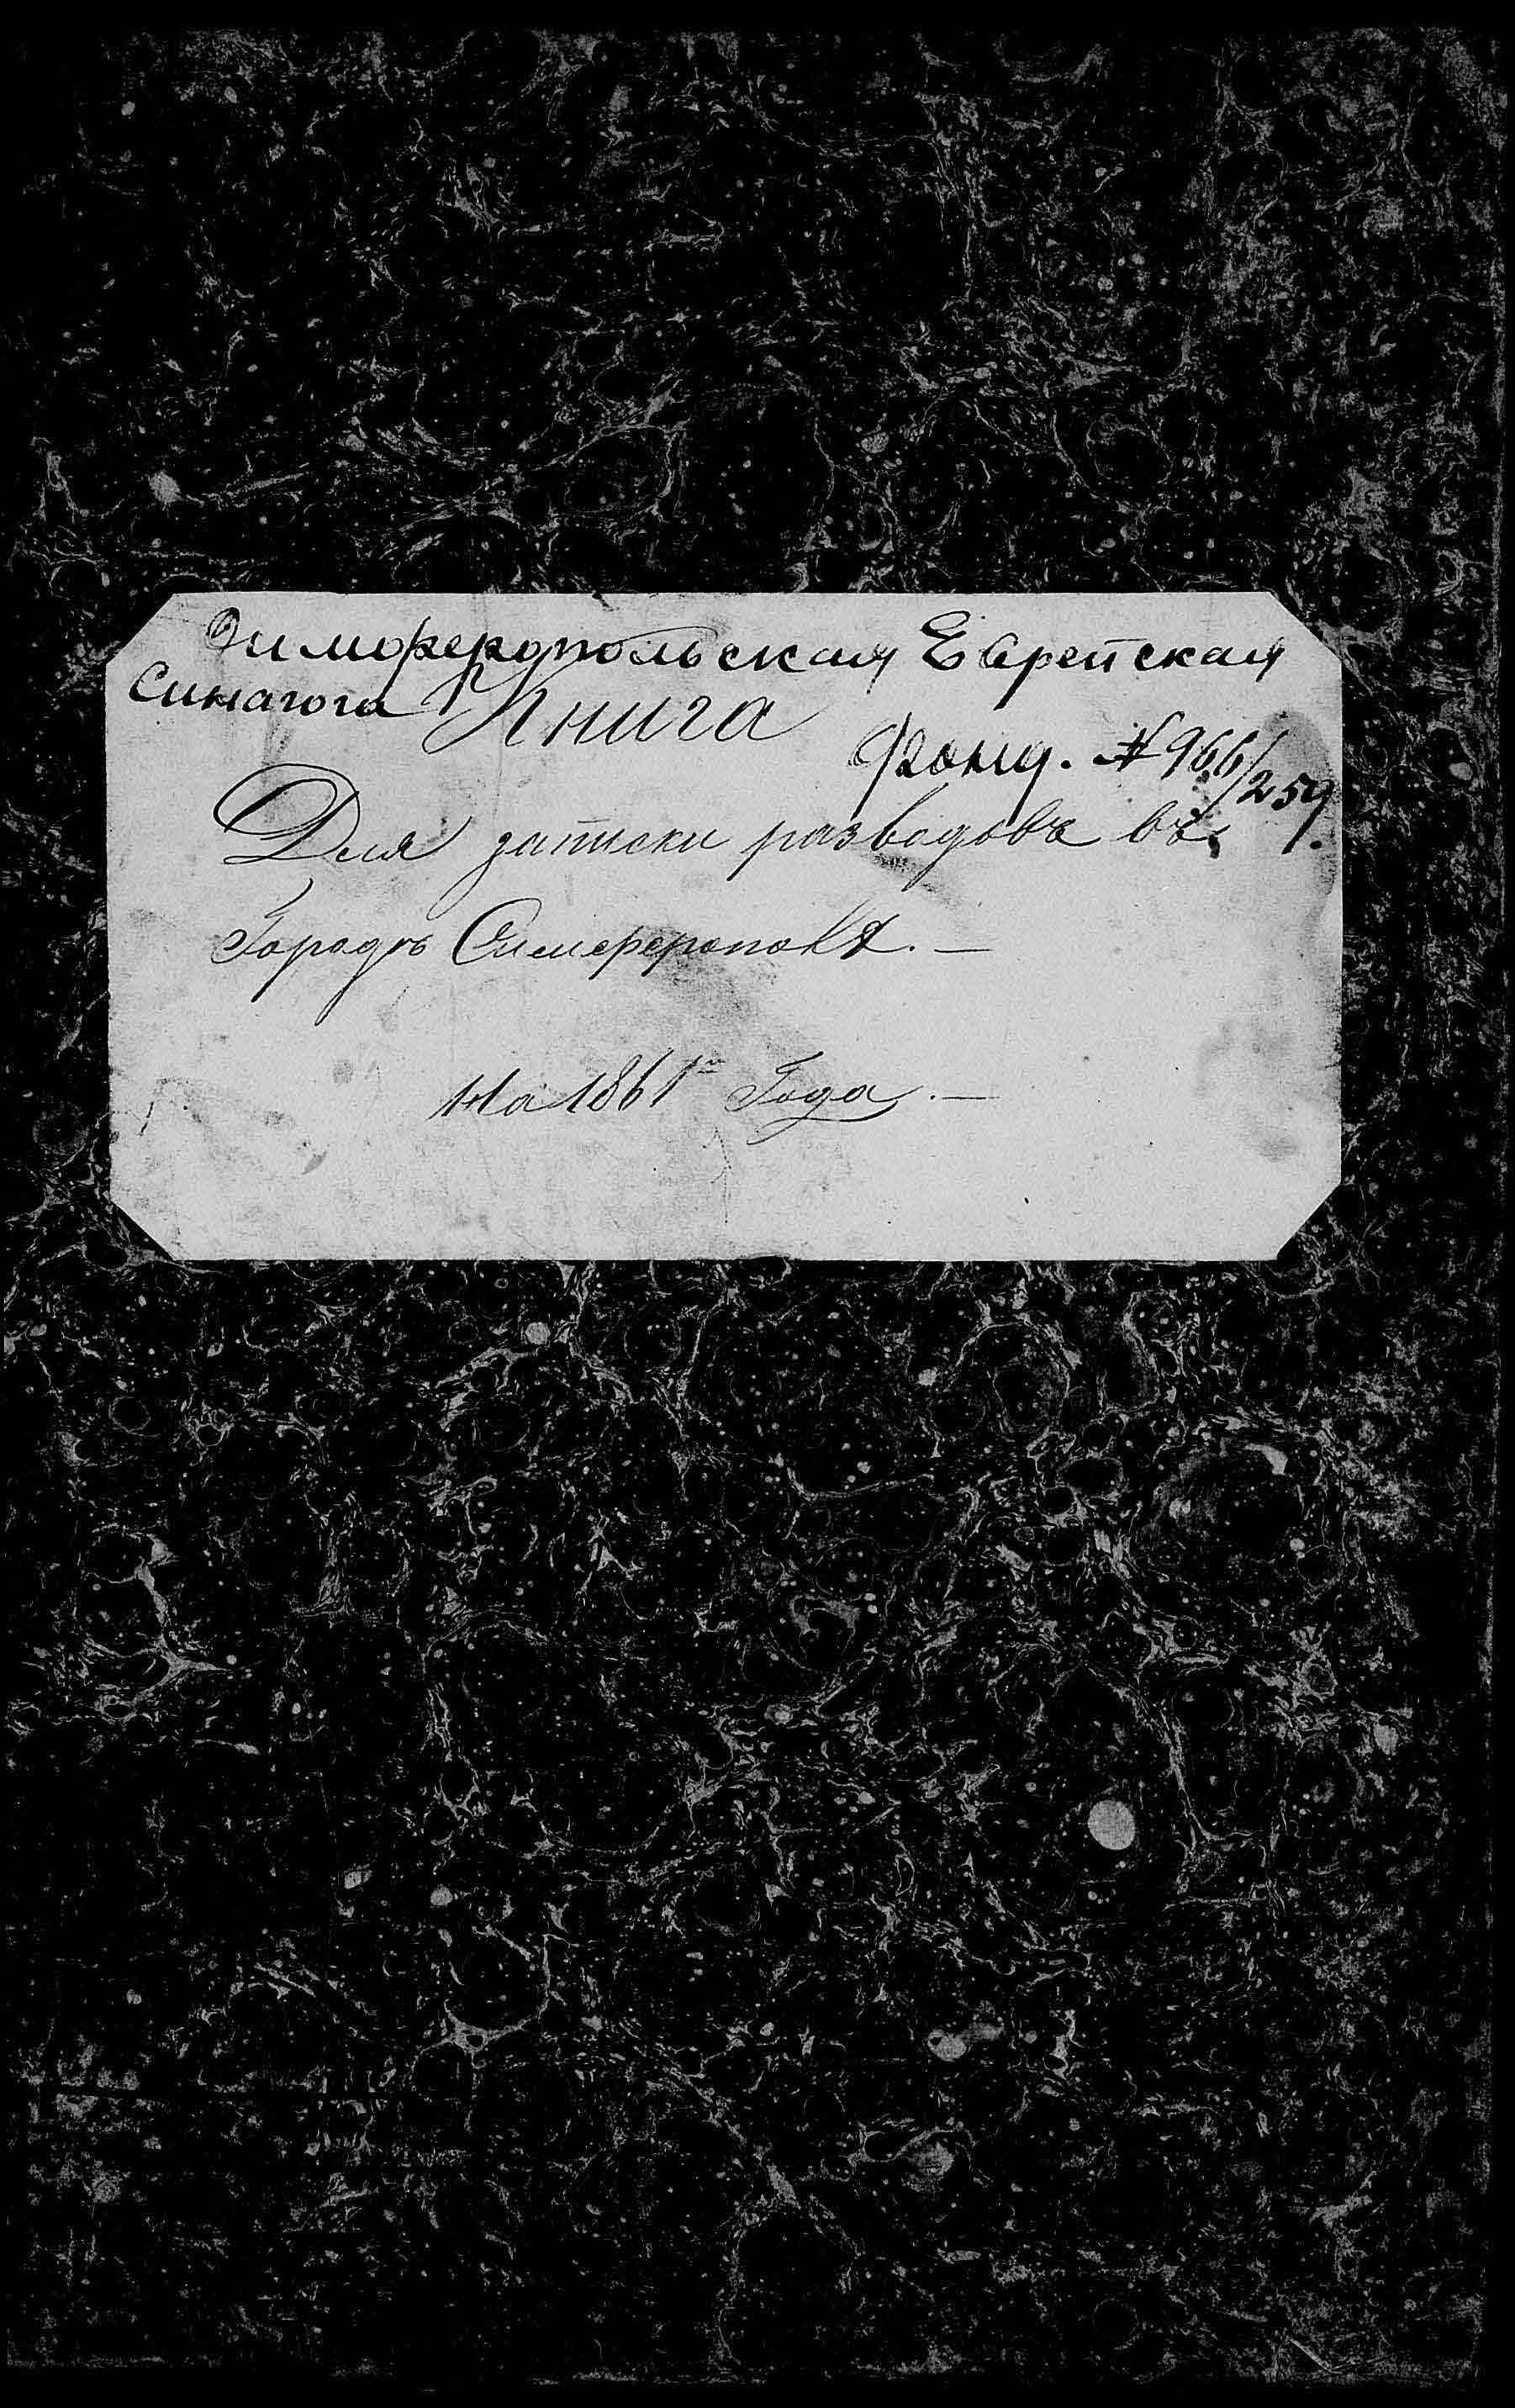 Симферопольская Еврейская
Синагога
Книга
Фонд. № 966/259
Для записки разводовъ въ
Городѣ Симферополѣ. —
На 1861го Года. —